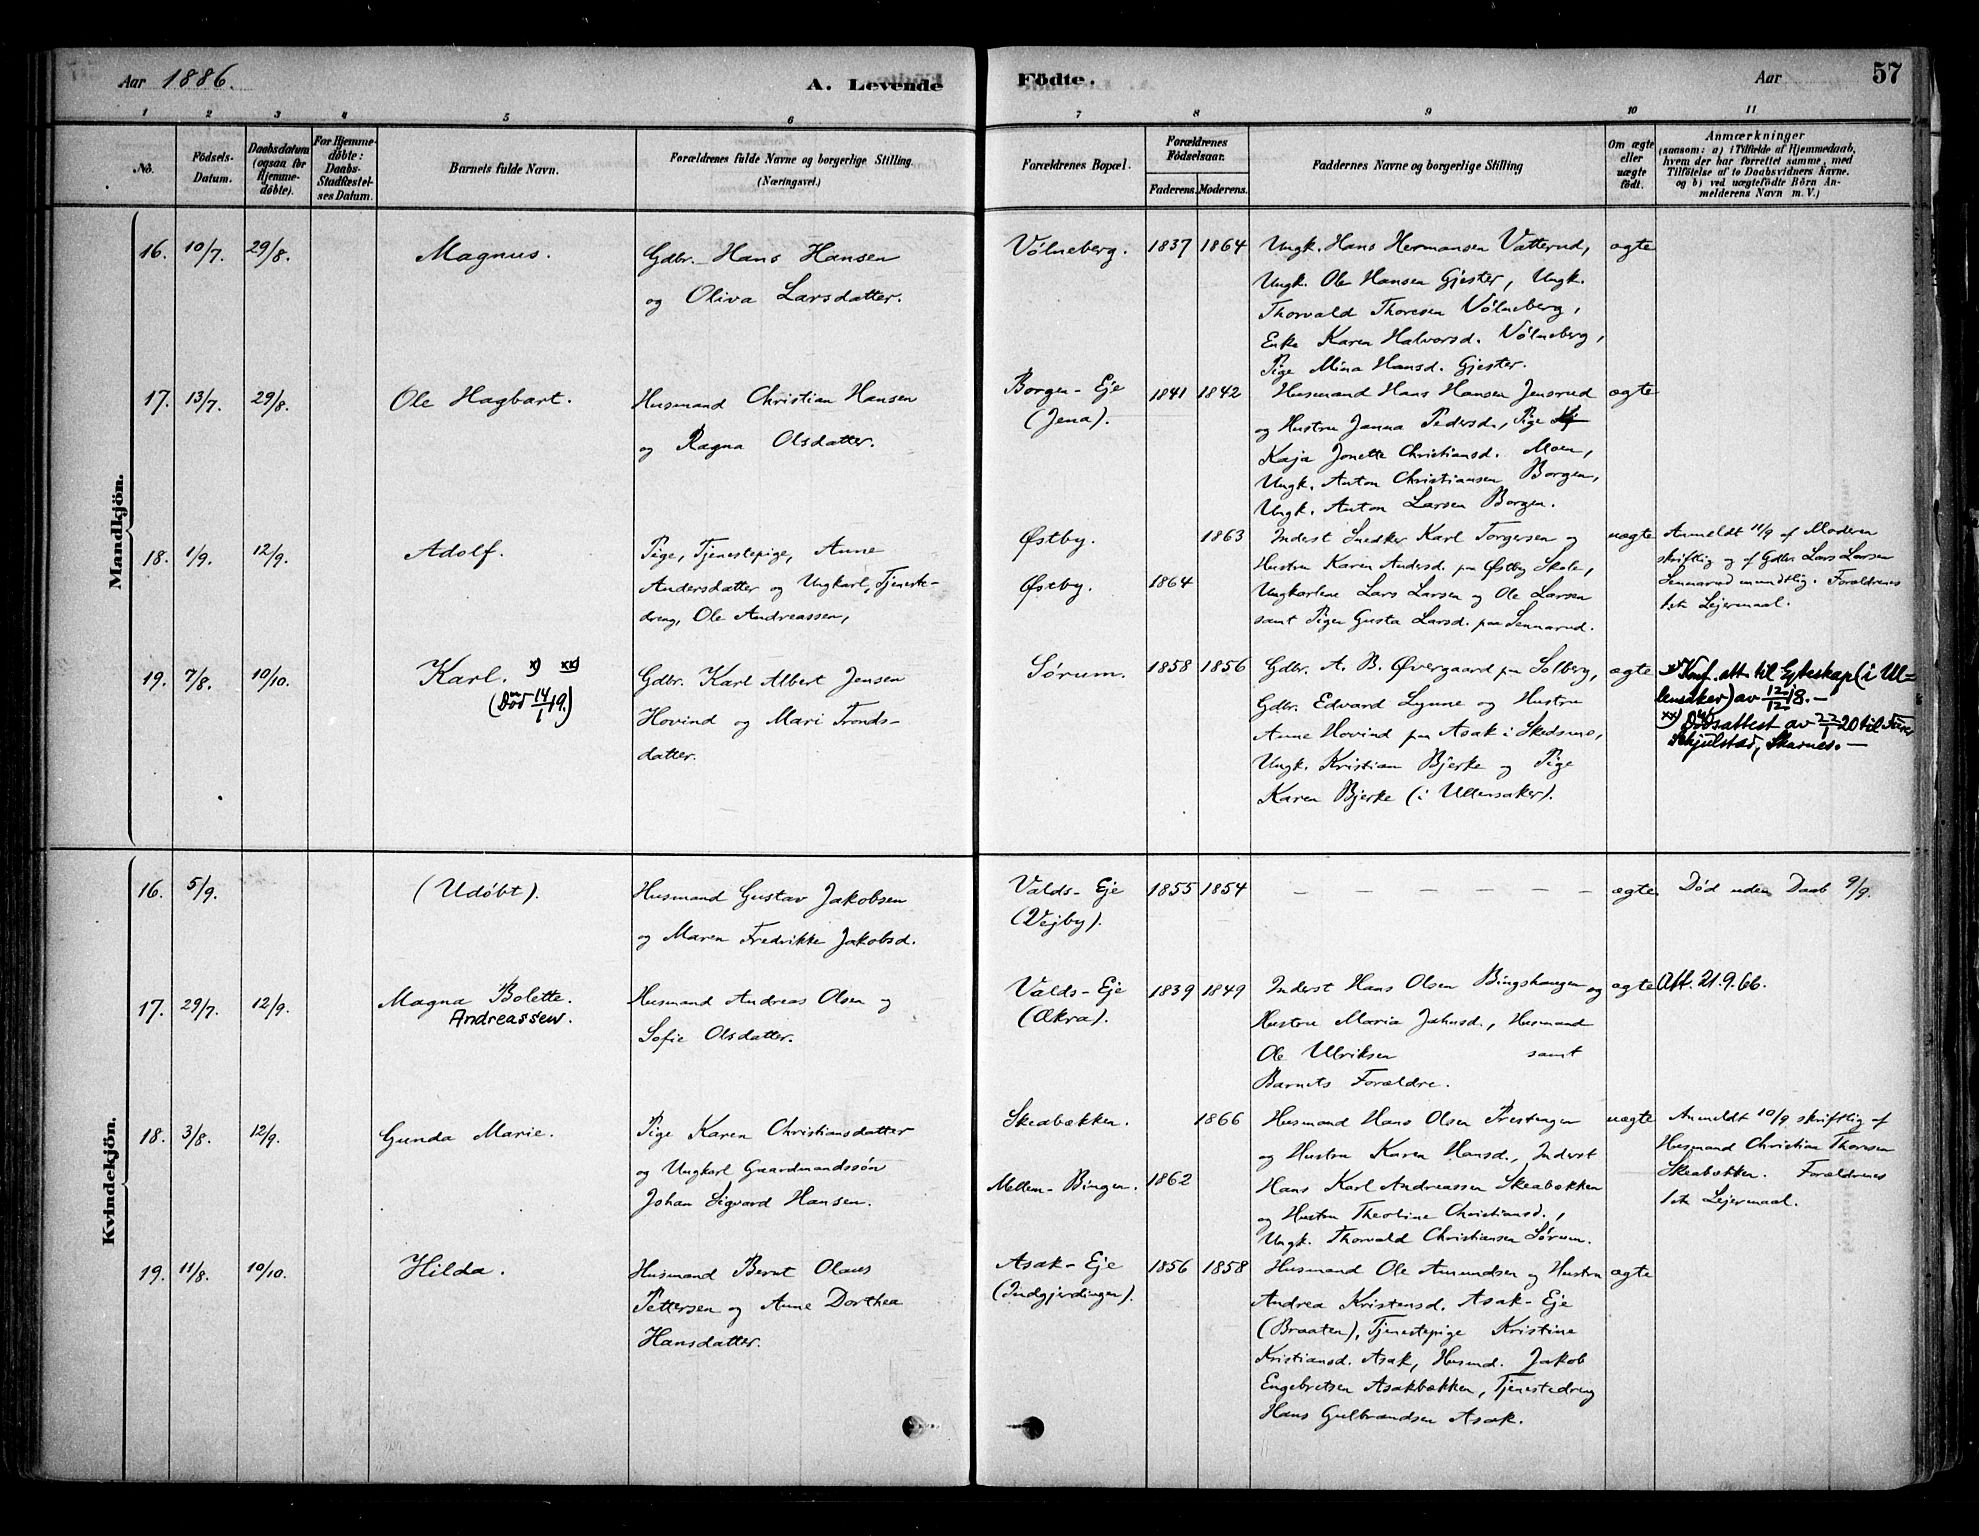 Aar 1886. A. Levende Födte. Aar 57
1 2 3 4 5 6 7 8 9 10 11
No.
Födsels-Datum.
Daabsdatum (ogsaa for Hjemme-döbte).
For Hjemme-döbte: Daabs-Stadfæstel-ses Datum.
Barnets fulde Navn.
Forældrenes fulde Navne og borgerlige Stilling.
(Næringsvei.)
Forældrenes Bopæl.
Forældrenes Födselsaar.
Faderens. Moderens.
Faddernes Navne og borgerlige Stilling
Om ægte eller uægte födt.
Anmærkninger
(saasom: a) i Tilfælde af Hjemmedaab,
hvem der har forrettet samme, med
Tilföielse af to Daabsvidners Navne.
og b) ved uægtefödte Börn An-
melderens Navn m. V.)
Mandkjön.
16. 10/7. 29/8. Magnus. Gdbr. Hans Hansen
og Oliva Larsdatter.
Völneberg. 1837 1864
Ungk. Hans Hermansen Vatterud,
Ungk. Ole Hansen Gjester, Ungk.
Thorvald Thoresen Völneberg,
Enke Karen Halvorsd. Völneberg,
Pige Mina Hansd. Gjester.
ægte
17. 13/7. 29/8. Ole Hagbart. Husmand Christian Hansen
og Ragna Olsdatter.
Borgen-Eje
(Jena).
1841 1842
Husmand Hans Hansen Jensrud
og Hustru Janna Pedersd., Pige
Kaja Jonette Christiansd. Moen,
Ungk. Anton Christiansen Borgen,
Ungk. Anton Larsen Borgen.
ægte
18. 1/9. 12/9. Adolf. Pige, Tjenestepige, Anne
Andersdatter og Ungkarl, Tjeneste-
dreng, Ole Andreassen,
Østby. 1863
Østby. 1864
Inderst Snedker Karl Torgersen og
Hustru Karen Andersd. paa Østby Skole,
Ungkarlene Lars Larsen og Ole Larsen
samt Pigen Gusta Larsd. paa Sennarud.
uægte
Anmeldt 11/9 af Moderen
skriftlig og af Gdbr. Lars Larsen
Sennarud mundtlig. Forældrenes
1ste Lejermaal.
19. 7/8. 10/10. Karl. x) xx)
(Død 14/1 19.)
Gdbr. Karl Albert Jensen
Hovind og Mari Tronds-
datter.
Sørum. 1858 1856
Gdbr. A. B. Øvergaard paa Solberg,
Gdbr. Edvard Lynne og Hustru
Anne Hovind paa Asak i Skedsmo,
Ungk. Kristian Bjerke og Pige
Karen Bjerke (i Ullensaker).
ægte
x) Konf. att til Egteskap (i Ul-
lensaker) av 12/12 18. -
xx) Dødsattest av 22/1 20 til
Skjulstad, Skarnes. -
Kvindekjön.
16. 5/9. (Udöbt). Husmand Gustav Jakobsen
og Maren Fredrikke Jakobsd.
Valds-Eje
(Vejby).
1855 1854
- - - - - - -
ægte
Död uden Daab 9/9.
17. 29/7. 12/9. Magna Bolette.
Andreassen.
Husmand Andreas Olsen og
Sofie Olsdatter.
Valds-Eje
(Ækra).
1839 1849
Inderst Hans Olsen Bingshaugen og
Hustru Maria Jahnsd., Husmand
Ole Ulriksen samt
Barnets Forældre.
ægte
Att. 21.9.66.
18. 3/8. 12/9. Gunda Marie. Pige Karen Christiansdatter
og Ungkarl Gaardmandssøn
Johan Sigvard Hansen.
Skeabækken. 1866
Mellem-Bingen. 1862
Husmand Hans Olsen Prestengen
og Hustru Karen Hansd., Inderst
Hans Karl Andreassen Skeabækken
og Hustru Theoline Christiansd.,
Ungk. Thorvald Christiansen Sørum.
uægte
Anmeldt 10/9 skriftlig af
Husmand Christian Thoresen
Skeabækken. Forældrenes
1ste Lejermaal.
19. 11/8. 10/10. Hilda. Husmand Bernt Olaus
Pettersen og Anne Dorthea
Hansdatter.
Asak-Eje
(Indgjerdingen).
1856 1858
Husmand Ole Amundsen og Hustru
Andrea Kristensd. Asak-Eje
(Braaten), Tjenestepige Kristine
Kristiansd. Asak, Husmd. Jakob
Engebretsen Asakbækken, Tjenestedreng
Hans Gulbrandsen Asak.
ægte